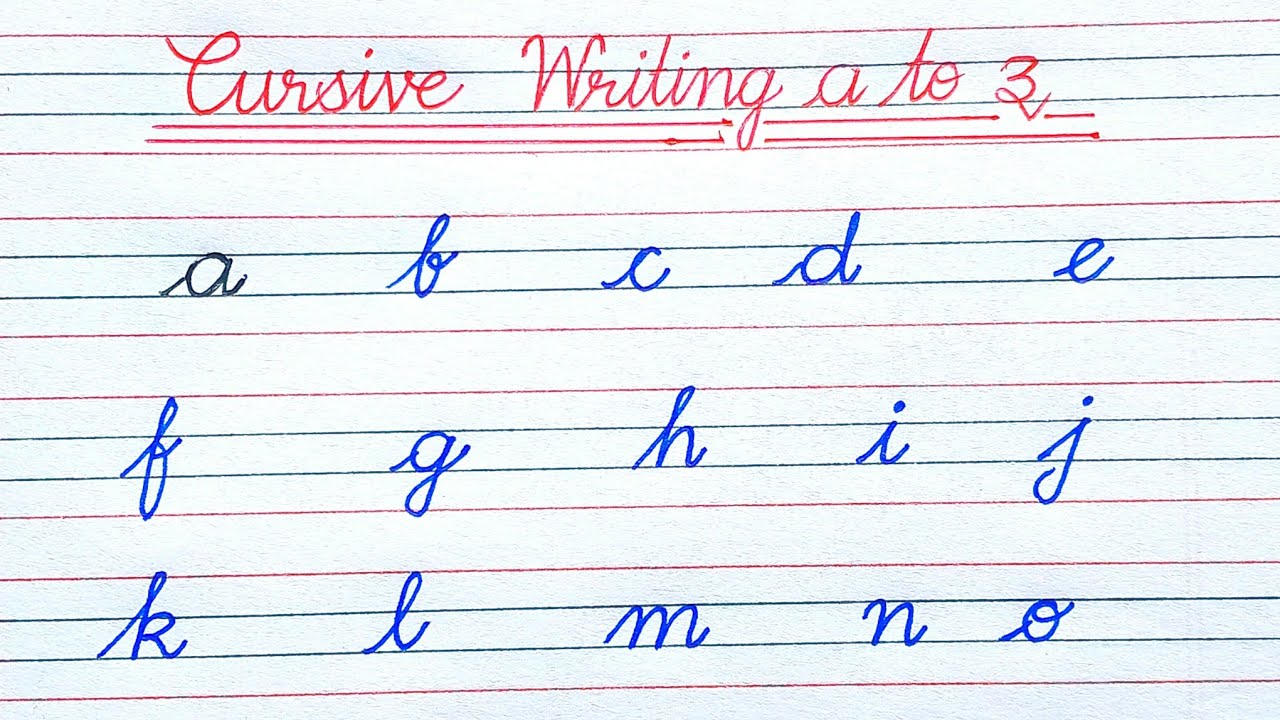 Cursive Writing a to z
a b c d e
f g h i j
k l m n o